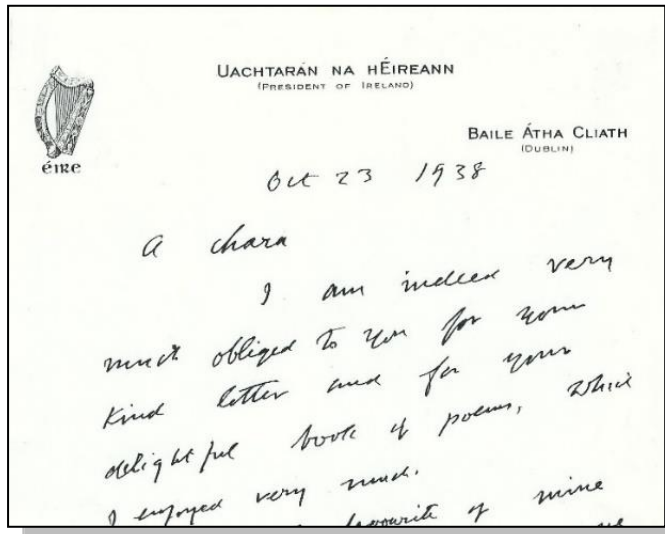 UACHTARÁN NA HÉIREANN
(PRESIDENT OF IRELAND)
BAILE ÁTHA CLIATH
(DUBLIN)
éire
Oct 23 1938
A chara
I am indeed very
much obliged to you for your
kind letter and for your
delightful book of poems, which
I enjoyed very much.
favourite of mine